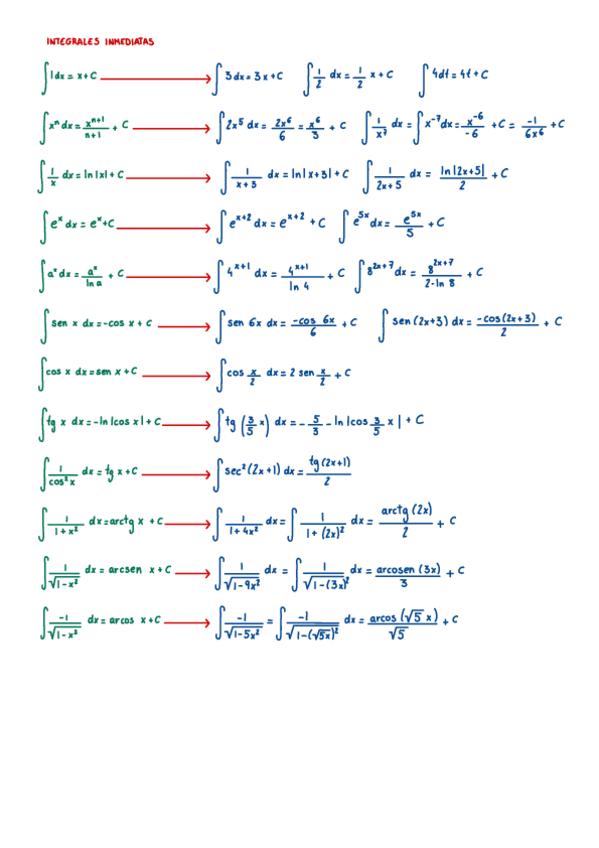 INTEGRALES INMEDIATAS
∫1dx = x+C → ∫3dx = 3x+C ∫1/2 dx = 1/2 x + C ∫4dt = 4t + C
∫xⁿ dx = xⁿ⁺¹/n+1 + C → ∫2x⁵ dx = 2x⁶/6 = x⁶/3 + C ∫1/x⁷ dx = ∫x⁻⁷dx = x⁻⁶/-6 + C = -1/6x⁶ + C
∫1/x dx = ln|x| + C → ∫1/x+3 dx = ln|x+3| + C ∫1/2x+5 dx = ln|2x+5|/2 + C
∫eˣ dx = eˣ+C → ∫eˣ⁺² dx = eˣ⁺² + C ∫e⁵ˣ dx = e⁵ˣ/5 + C
∫aˣ dx = aˣ/ln a + C → ∫4ˣ⁺¹ dx = 4ˣ⁺¹/ln 4 + C ∫8²ˣ⁺⁷ dx = 8²ˣ⁺⁷/2·ln 8 + C
∫sen x dx = -cos x + C → ∫sen 6x dx = -cos 6x/6 + C ∫sen (2x+3) dx = -cos(2x+3)/2 + C
∫cos x dx = sen x + C → ∫cos x/2 dx = 2 sen x/2 + C
∫tg x dx = -ln|cos x| + C → ∫tg (3/5 x) dx = - 5/3 - ln|cos 3/5 x| + C
∫1/cos²x dx = tg x + C → ∫sec²(2x+1) dx = tg(2x+1)/2
∫1/1+x² dx = arctg x + C → ∫1/1+4x² dx = ∫1/1+(2x)² dx = arctg (2x)/2 + C
∫1/√1-x² dx = arcsen x + C → ∫1/√1-9x² dx = ∫1/√1-(3x)² dx = arcosen (3x)/3 + C
∫-1/√1-x² dx = arcos x + C → ∫-1/√1-5x² = ∫-1/√1-(√5x)² dx = arcos (√5 x)/√5 + C